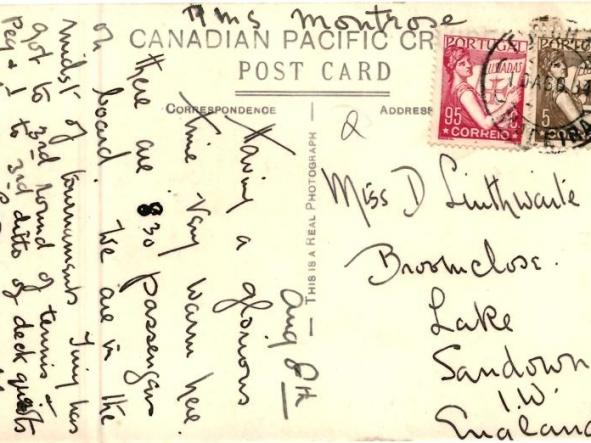 HMS Montrose
CANADIAN PACIFIC CR
POST CARD
CORRESPONDENCE
ADDRESS
THIS IS A REAL PHOTOGRAPH
Aug 8th
Having a glorious
time. Very warm here.
There are 830 passengers
on board. We are in the
midst of tournaments
got to 3rd round of tennis &
Peg & I to 3rd ditto of deck quoits
Miss D Linthwaite
Broomclose.
Lake
Sandown
I.W.
England
PORTUGAL
LUSIADAS
95
CORREIO
PORTUGAL
5